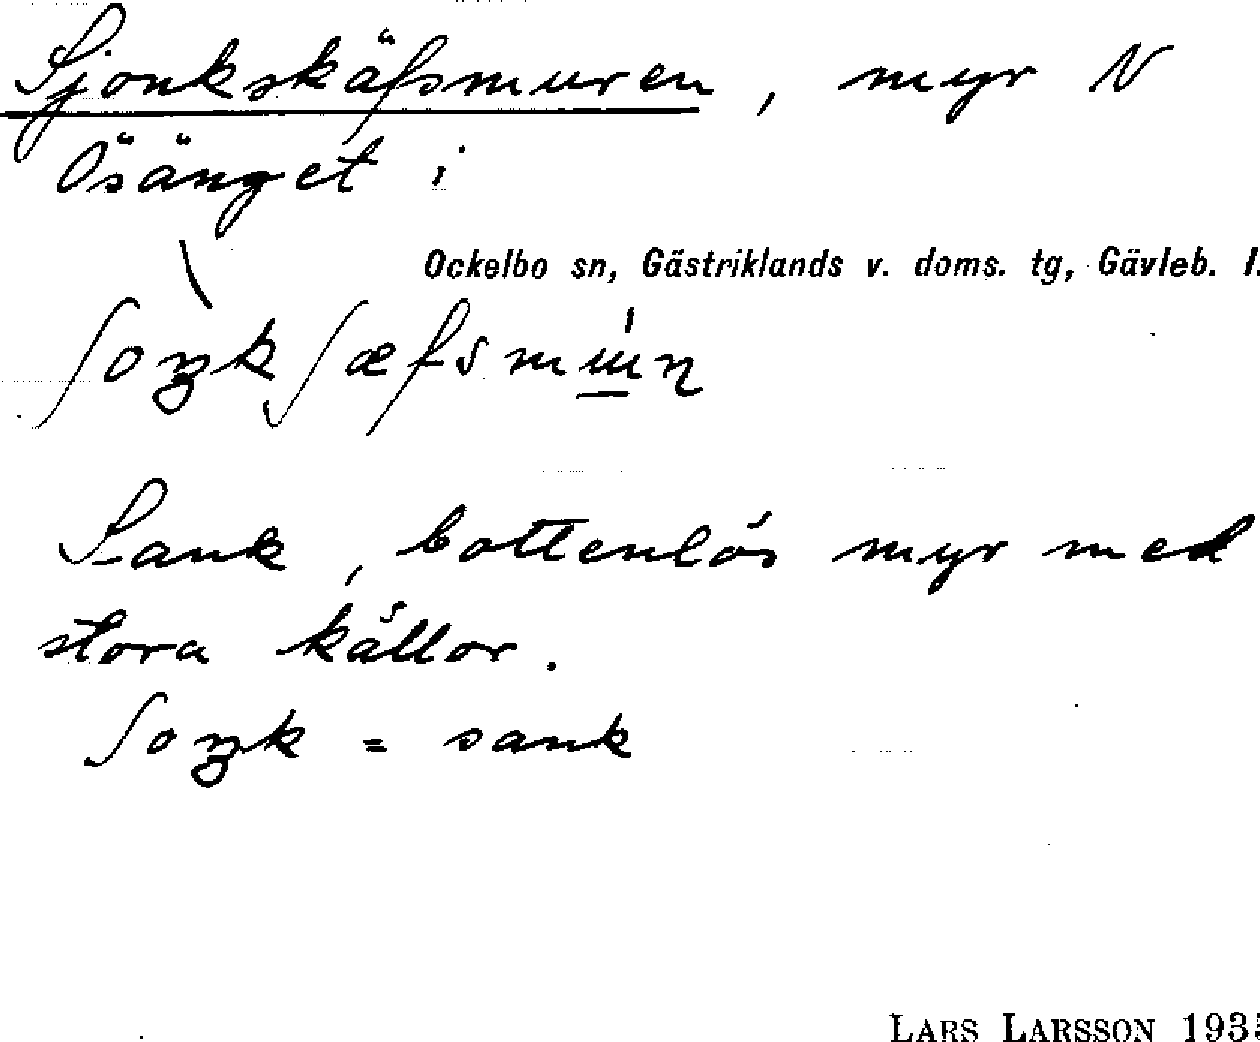 Sjonkskäfsmuren, myr N
Ösänget i
Ockelbo sn, Gästriklands v. doms. tg, Gävleb. l.
Sank, bottenlös myr med
stora källor.
ʃoŋk = sank
LARS LARSSON 193